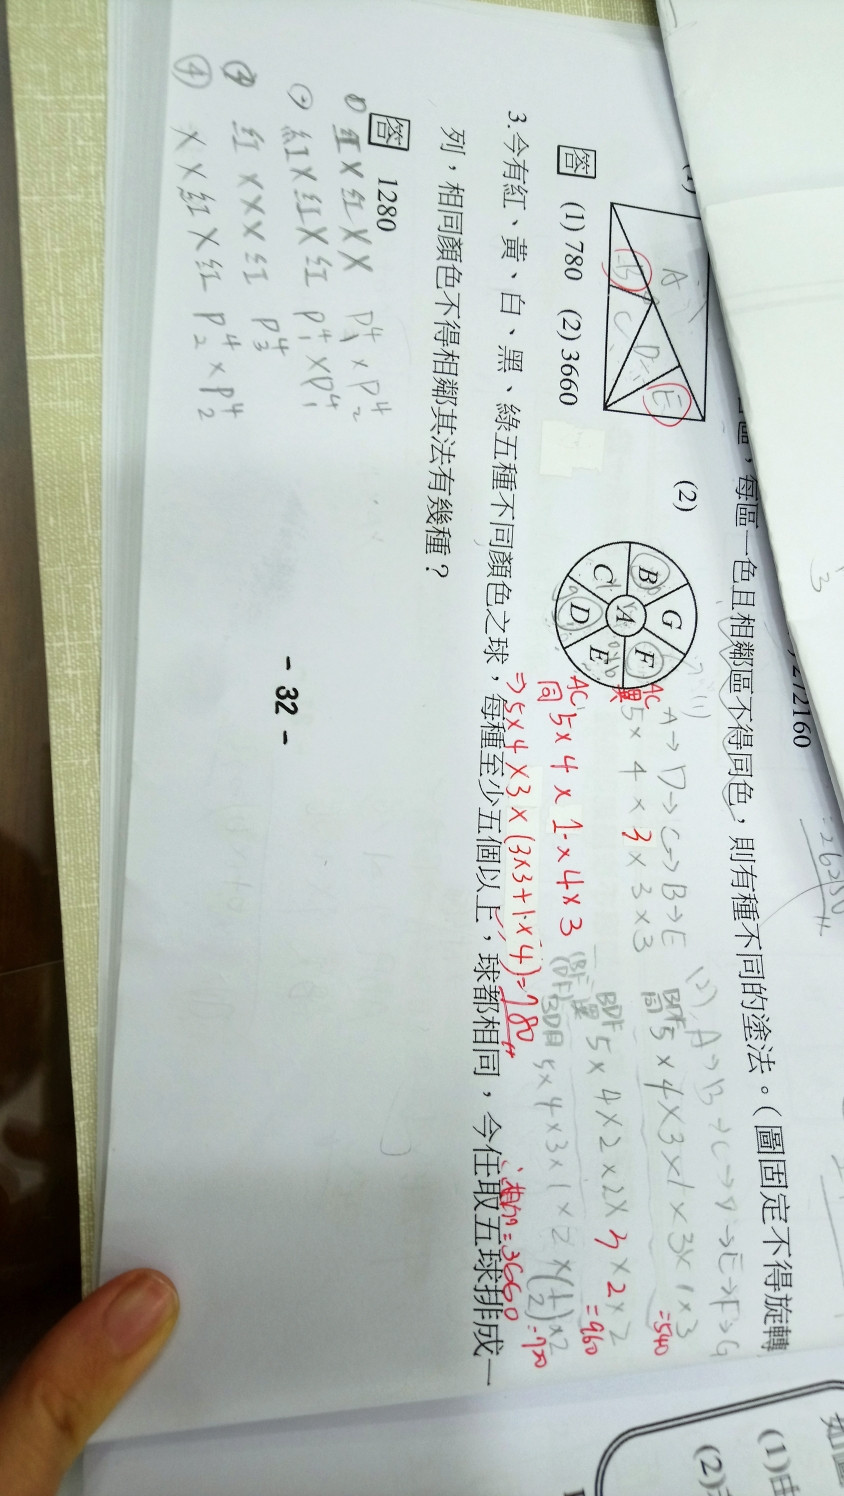 /2160
區，每區一色且相鄰區不得同色，則有種不同的塗法。（圖固定不得旋轉
(2)
A
B
C
D
E
G
B
F
A
C
E
D
答 (1) 780 (2) 3660
A→D→C→B→E
AC異 5×4×3×3×3
AC同 5×4×1×4×3
⇒5×4×3×(3×3+1×4)=780
(2) A→B→C→D→E→F→G
BDF同 5×4×3×1×3×1×3 =540
BDF異 5×4×2×2×3×2×2 =960
=3660
3. 今有紅、黃、白、黑、綠五種不同顏色之球，每種至少五個以上，球都相同，今任取五球排成一
列，相同顏色不得相鄰其法有幾種？
答 1280
紅×紅×× P⁴₁×P⁴₂
紅×紅×紅 P⁴₁×P⁴₁
紅×××紅 P⁴₃
④ ××紅×紅 P⁴₂×P⁴₂
- 32 -
(1)由
(2)